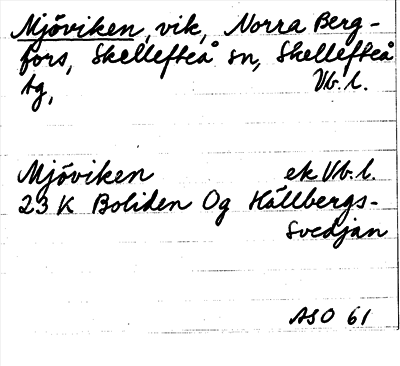 Mjöviken, vik, Norra Berg-
fors, Skellefteå sn, Skellefteå
tg, Vb. l.
Mjöviken ek Vb. l.
23 K Boliden Og Hällbergs-
Svedjan
ASO 61